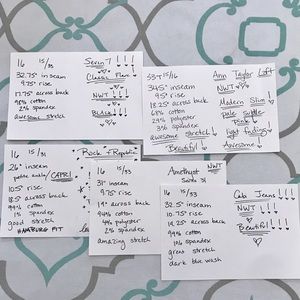 16 15/33
32.75" inseam
9.75" rise
17.75" across back
98% cotton
2% spandex
awesome stretch
Seven7 !!!
Classic Flare
NWT !!!
BLACK !!!
33+ 15/16
34.5" inseam
9.5" rise
18.25" across back
68% cotton
29% polyester
3% spandex
awesome stretch
Beautiful!
Ann Taylor Loft
NWT!
Modern Slim
pale subtle
Pink
light fadings
Awesome
16 15/33
26" inseam
CAPRI
10.5" rise
18.5" across back
99% cotton
1% spandex
good stretch
Rock & Republic
16 15/33
31" inseam
9.75" rise
19" across back
94% cotton
4% polyester
2% spandex
amazing stretch
Amethyst NWT
16 15/33
32.5" inseam
10.75" rise
19.25" across back
99% cotton
1% spandex
great stretch
dark blue wash
Jeans !!!
NWT !!!
Beautiful !